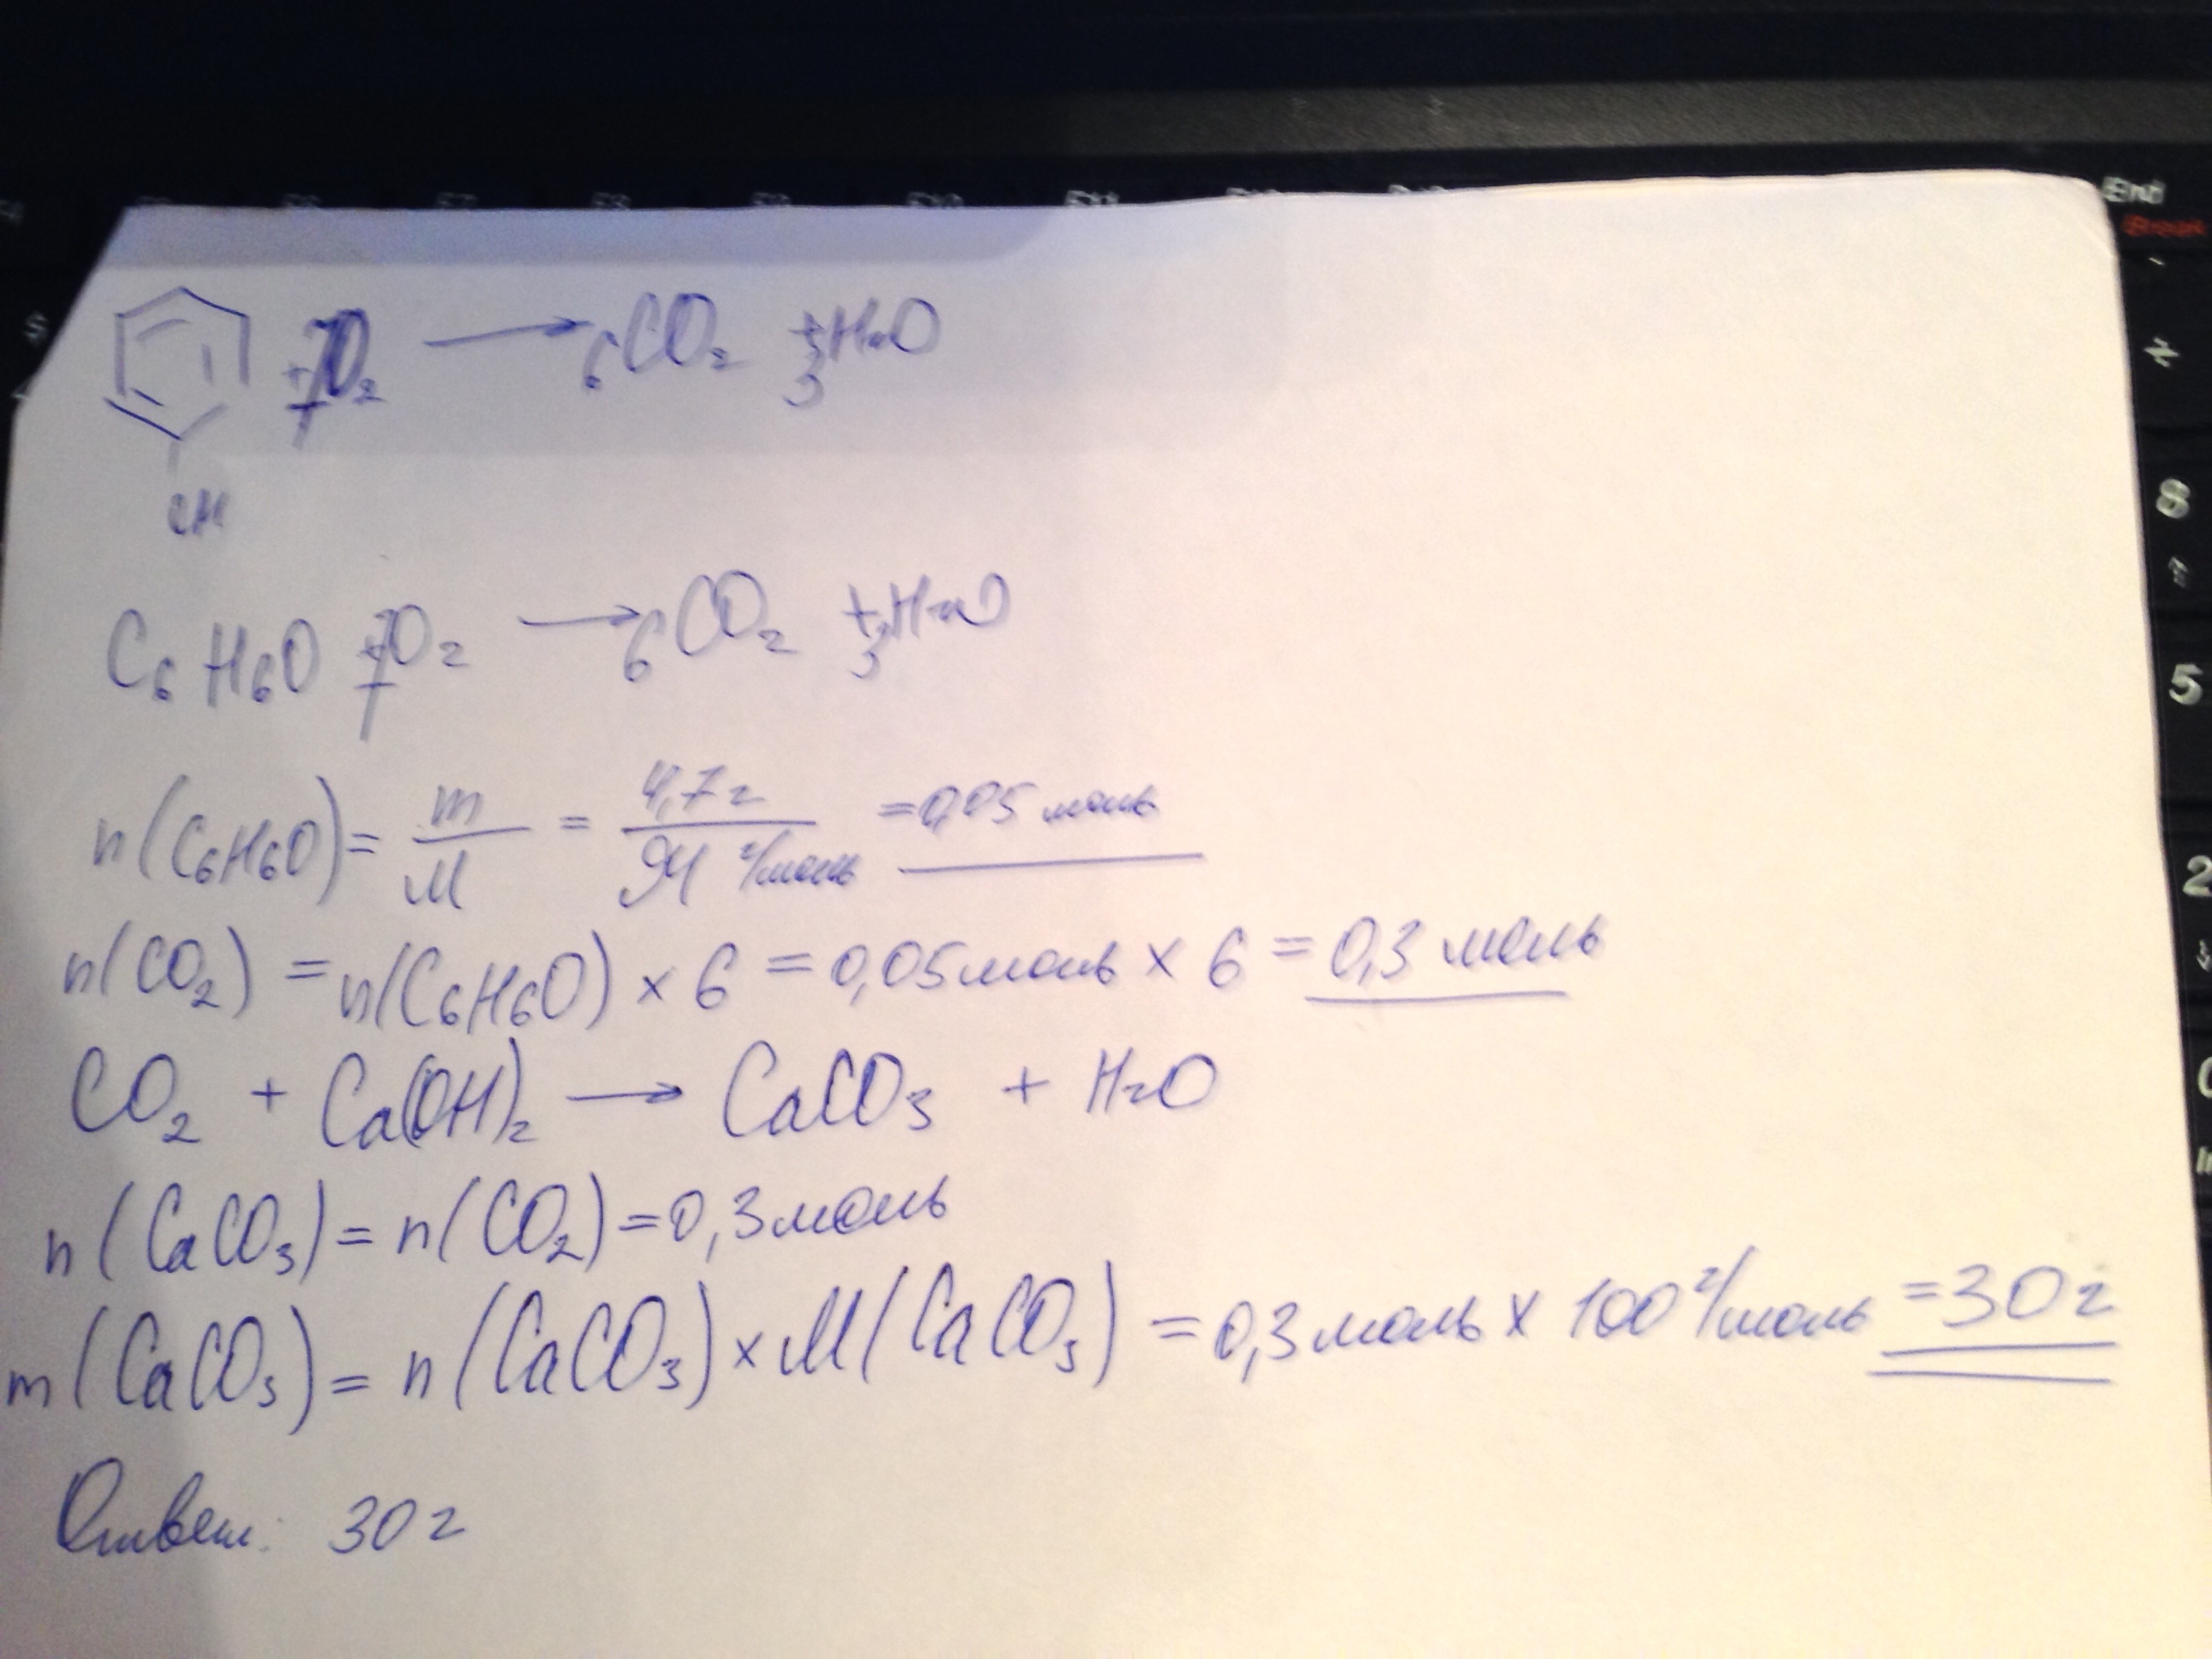 End
Break
+ 7O₂ → 6CO₂ + 3H₂O
OH
C₆H₆O + 7O₂ → 6CO₂ + 3H₂O
n(C₆H₆O) = m/M = 4,7г / 94 г/моль = 0,05 моль
n(CO₂) = n(C₆H₆O) × 6 = 0,05моль × 6 = 0,3 моль
CO₂ + Ca(OH)₂ → CaCO₃ + H₂O
n(CaCO₃) = n(CO₂) = 0,3моль
m(CaCO₃) = n(CaCO₃) × M(CaCO₃) = 0,3моль × 100 г/моль = 30г
Ответ: 30г
8
5
2